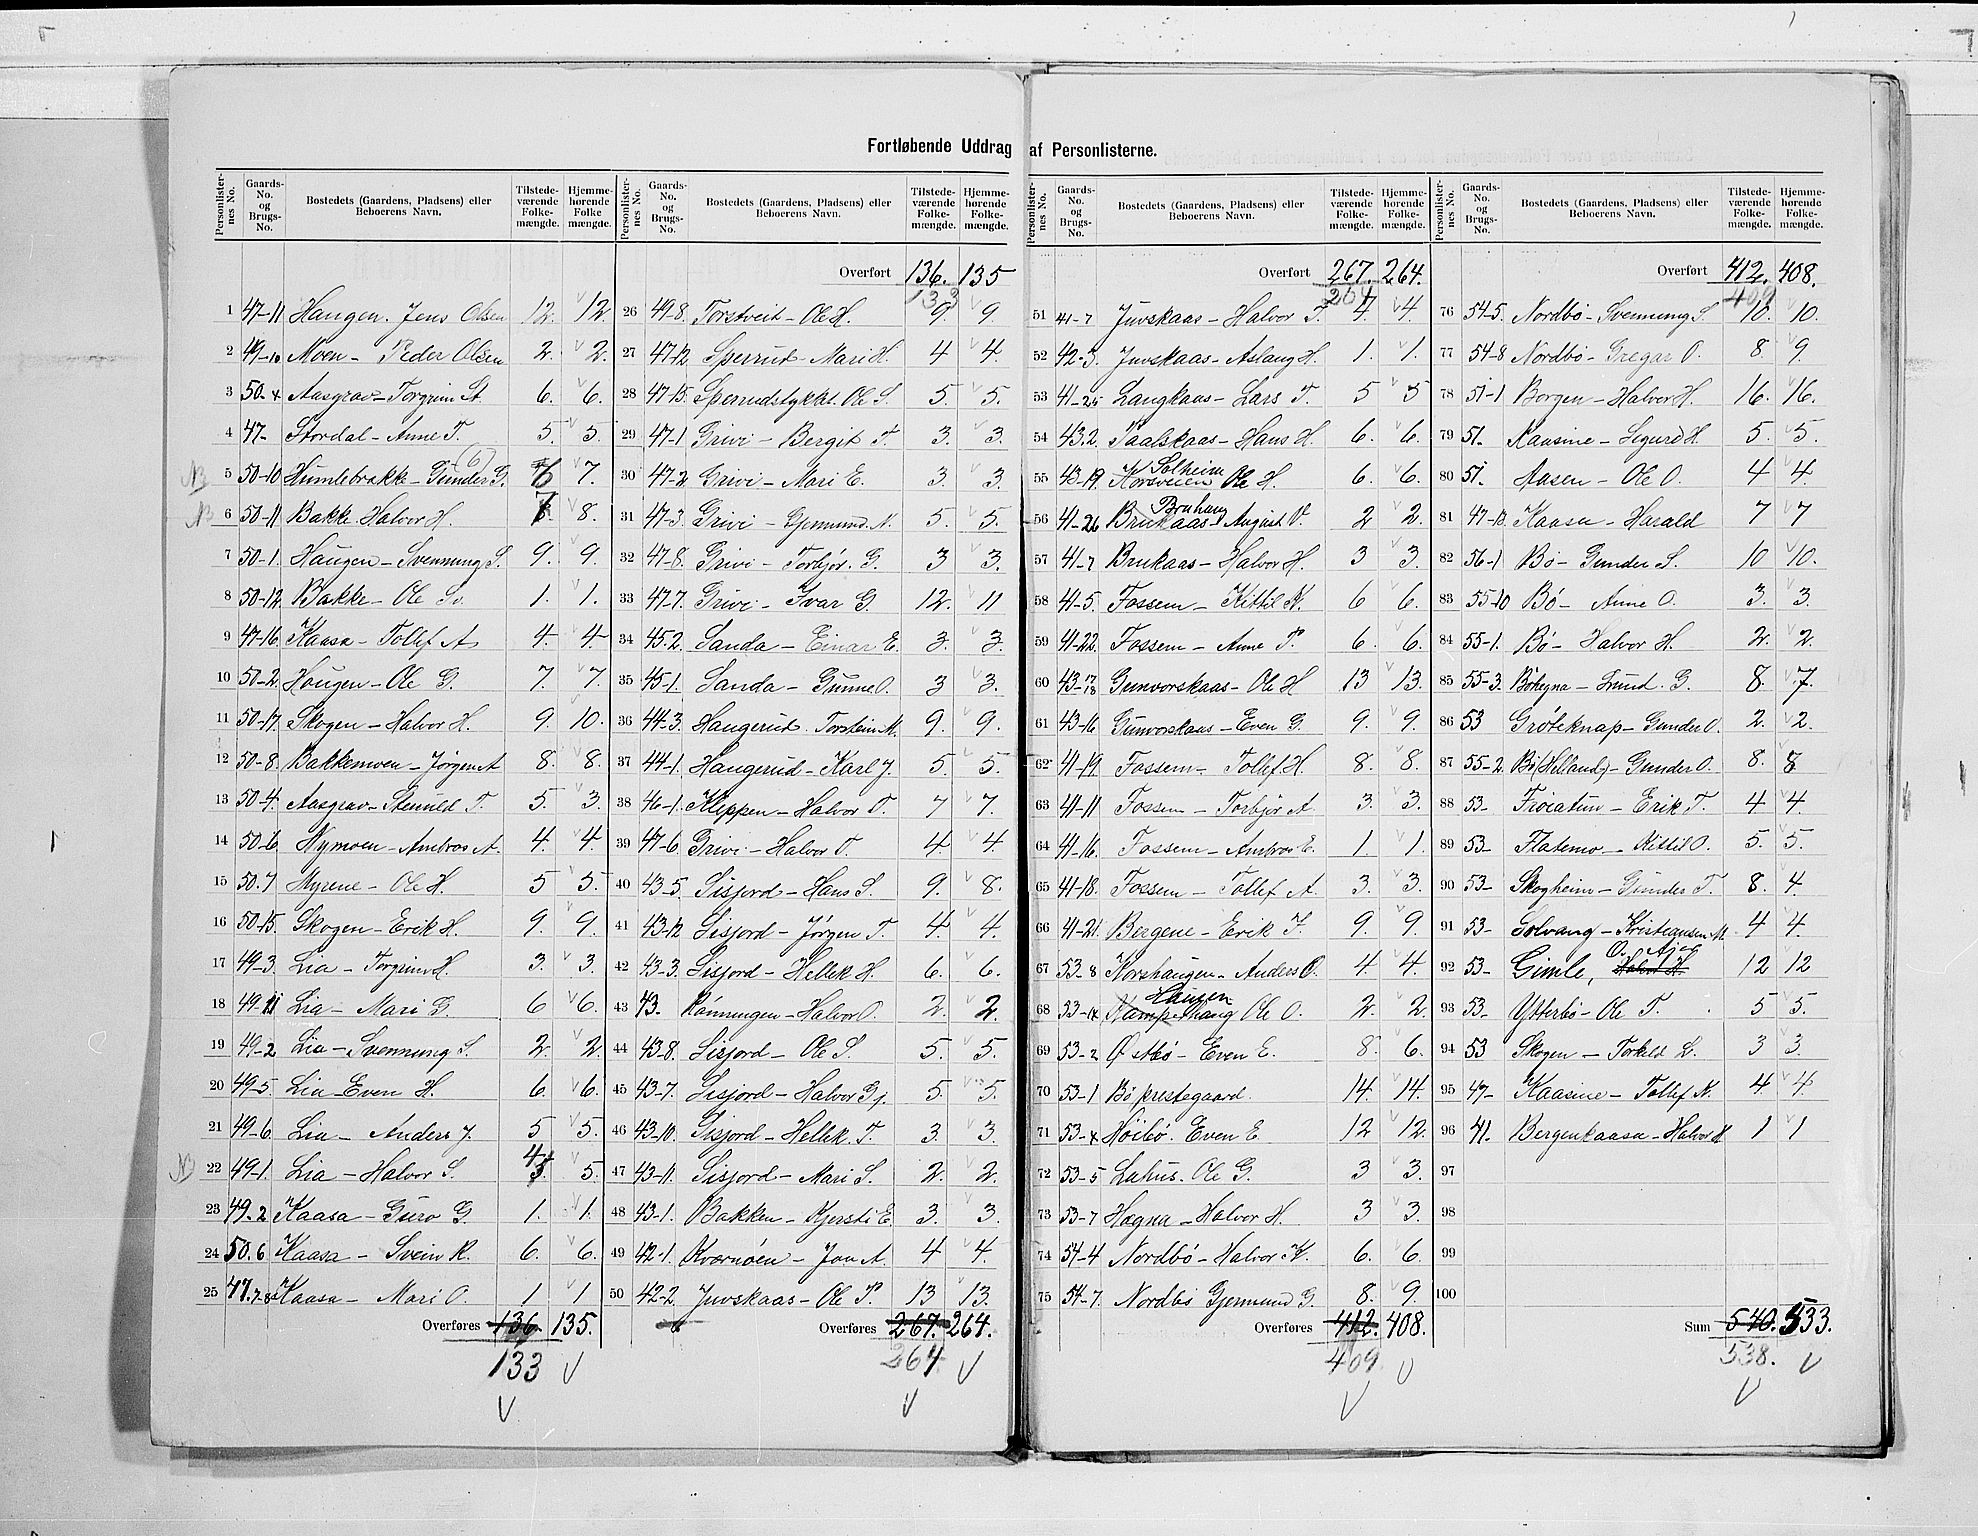 Fortløbende Uddrag af Personlisterne.
Personlisternes No. | Gaards-No. og Brugs-No. | Bostedets (Gaardens, Pladsens) eller Beboerens Navn. | Tilstedeværende Folkemængde. | Hjemmehørende Folkemængde.
1 47-11 Haugen. Jens Olsen 12. 12
2 49-10 Moen - Peder Olsen 2. 2.
3 50-4 Aasgrav - Torgrim St. 6. 6.
4 47- Stordal - Anne T. 5. 5.
NB 5 50-10 Humlebrække - Gunder G. (6) 7.
NB 6 50-11 Bakke Halvor H. 7 8.
7 50-1. Haugen - Svennung S. 9. 9.
8 50-12. Bakke - Ole Sv. 1. 1.
9 47-16. Kaasa - Tollef A 4. 4.
10 50-2. Haugen - Ole G. 7. 7.
11 50-17. Skogen - Halvor H. 9. 10.
12 50-8. Bakkemoen - Jørgen A 8. 8.
13 50-4. Aasgrav - Stenuld T. 5. 3.
14 50-6. Nymoen - Ambros A. 4. 4.
15 50.7 Myrene - Ole H. 5 5.
16 50-15. Skogen - Erik H. 9. 9.
17 49-3. Lia - Torgrim H. 3. 3.
18 49-11 Lia - Mari G. 6 6.
19 49-2 Lia - Svennung S. 2. 2.
20 49-5. Lia - Even H. 6. 6.
21 49-6. Lia - Anders J. 5 5.
NB 22 49-1. Lia - Halvor S. 4 5.
23 49.2 Kaasa - Guro G. 1. 1.
24 50.6 Kaasa - Svein R. 6. 6.
25 47.7-8 Kaasa - Mari O. 1 1
Overføres 136. 135.
133
Overført 136. 135
133
26 49-8. Torstveit - Ole H. 9. 9.
27 47-12. Sperrud - Mari H. 4 4.
28 47-15. Sperrudstykket. Ole S. 5. 5.
29 47-1 Grivi - Bergit T. 3. 3.
30 47-2 Grivi - Mari E. 3. 3.
31 47-3. Grivi - Gjermund N. 5. 5.
32 47-8. Grivi - Torbjør. G. 3 3.
33 47-7. Grivi - Ivar G. 12. 11
34 45-2. Sanda - Einar E. 3. 3.
35 45-1. Sanda - Gunne O. 3 3.
36 44-3. Haugerud. Torstein M. 9. 9.
37 44-1. Haugerud - Karl J. 5. 5.
38 46-1. Kleppen - Halvor O. 7 7.
39 47-6. Grivi - Halvor T. 4. 4.
40 43-5. Sisjord - Hans S. 9. 8.
41 43-12 Sisjord - Jørgen T. 4. 4.
42 43-3. Sisjord - Hellek H. 6. 6.
43 43. Rønningen - Halvor O. 2. 2.
44 43-8. Sisjord - Ole S. 5. 5.
45 43-7. Sisjord - Halvor Gj. 5. 5.
46 43-10. Sisjord - Hellek. T. 3. 3.
47 43-11. Sisjord - Mari S. 2. 2.
48 43-1. Bakken - Kjersti E. 3. 3.
49 42-1. Kvernøen - Jon A. 4 4.
50 42-2. Juvskaas - Ole P. 13 13.
Overføres 267. 264.
264
Overført 267. 264.
264
51 41-7 Juvskaas - Halvor T. 4. 4.
52 42-3. Juvskaas - Aslaug H. 1. 1.
53 41-25 Langkaas - Lars T. 5 5
54 43.2. Paalskaas - Hans H. 6. 6.
55 43-19. Korsveien Solheim Ole H. 6. 6.
56 41-26 Brukaas Bruhaug August O. 2 2.
57 41-7 Brukaas - Halvor H. 3 3.
58 41-5. Fossem - Kittil K. 6 6.
59 41-22. Fossem - Anne P. 6 6.
60 43-17 18 Gunvorskaas - Ole H 13 13.
61 43-16 Gunvorskaas - Even G. 9. 9.
62 41-19. Fossem - Tollef H. 8. 8.
63 41-11 Fossem - Torbjør A 3. 3.
64 41-16. Fossem - Ambros E. 1. 1.
65 41-18. Fossem - Tollef A. 3. 3.
66 41-21. Bergene - Erik F. 9. 9.
67 53-8 Korshaugen - Anders O. 4. 4.
68 53-14 Kamperhaug Haugen Ole O. 2. 2.
69 53-2 Østbø - Even E. 8. 6.
70 53-1 Bø prestegaard. 14. 14.
71 53-4 Høibø. Even E. 12 12.
72 53-5 Lahus. Ole G. 3 3.
73 53-7 Hægna - Halvor H. 3 3.
74 54-4 Nordbø - Halvor K. 6. 6.
75 54-7. Nordbø Gjermund G. 8. 9
Overføres 412. 408.
409
Overført 412. 408.
409
76 54-5. Nordbø - Svennung S. 10. 10.
77 54-8 Nordbø - Gregar O. 8. 9
78 51-1 Borgen - Halvor H. 16. 16.
79 51. Kaasine - Sigurd H. 5. 5.
80 51. Aasen - Ole O. 4 4
81 47-13. Kaasa - Harald 7 7
82 56-1 Bø - Gunder S. 10 10.
83 55-10 Bø - Anne O. 3. 3.
84 55-1. Bø - Halvor H. 2. 2.
85 55-3. Bøhegna - Trund. G. 8. 7.
86 53 Grøteknap - Gunder O. 2. 2.
87 55-2. Bø (Helland) - Gunder O. 8. 8
88 53- Froiatun - Erik T. 4 4.
89 53- Flatemo - Kittil O. 5. 5.
90 53- Skogheim - Gunder T. 8. 4.
91 53- Solvang - Kristiansen M. 4 4.
92 53- Gimle, Halvor H 12 12
93 53- Ytterbø - Ole T. 5 5.
94 53 Skogen - Torkild L. 3 3.
95 47- Kaasine - Tollef N. 4 4.
96 41. Bergenkaasa - Halvor H 1 1
97
98
99
100
Sum 540. 533.
538.